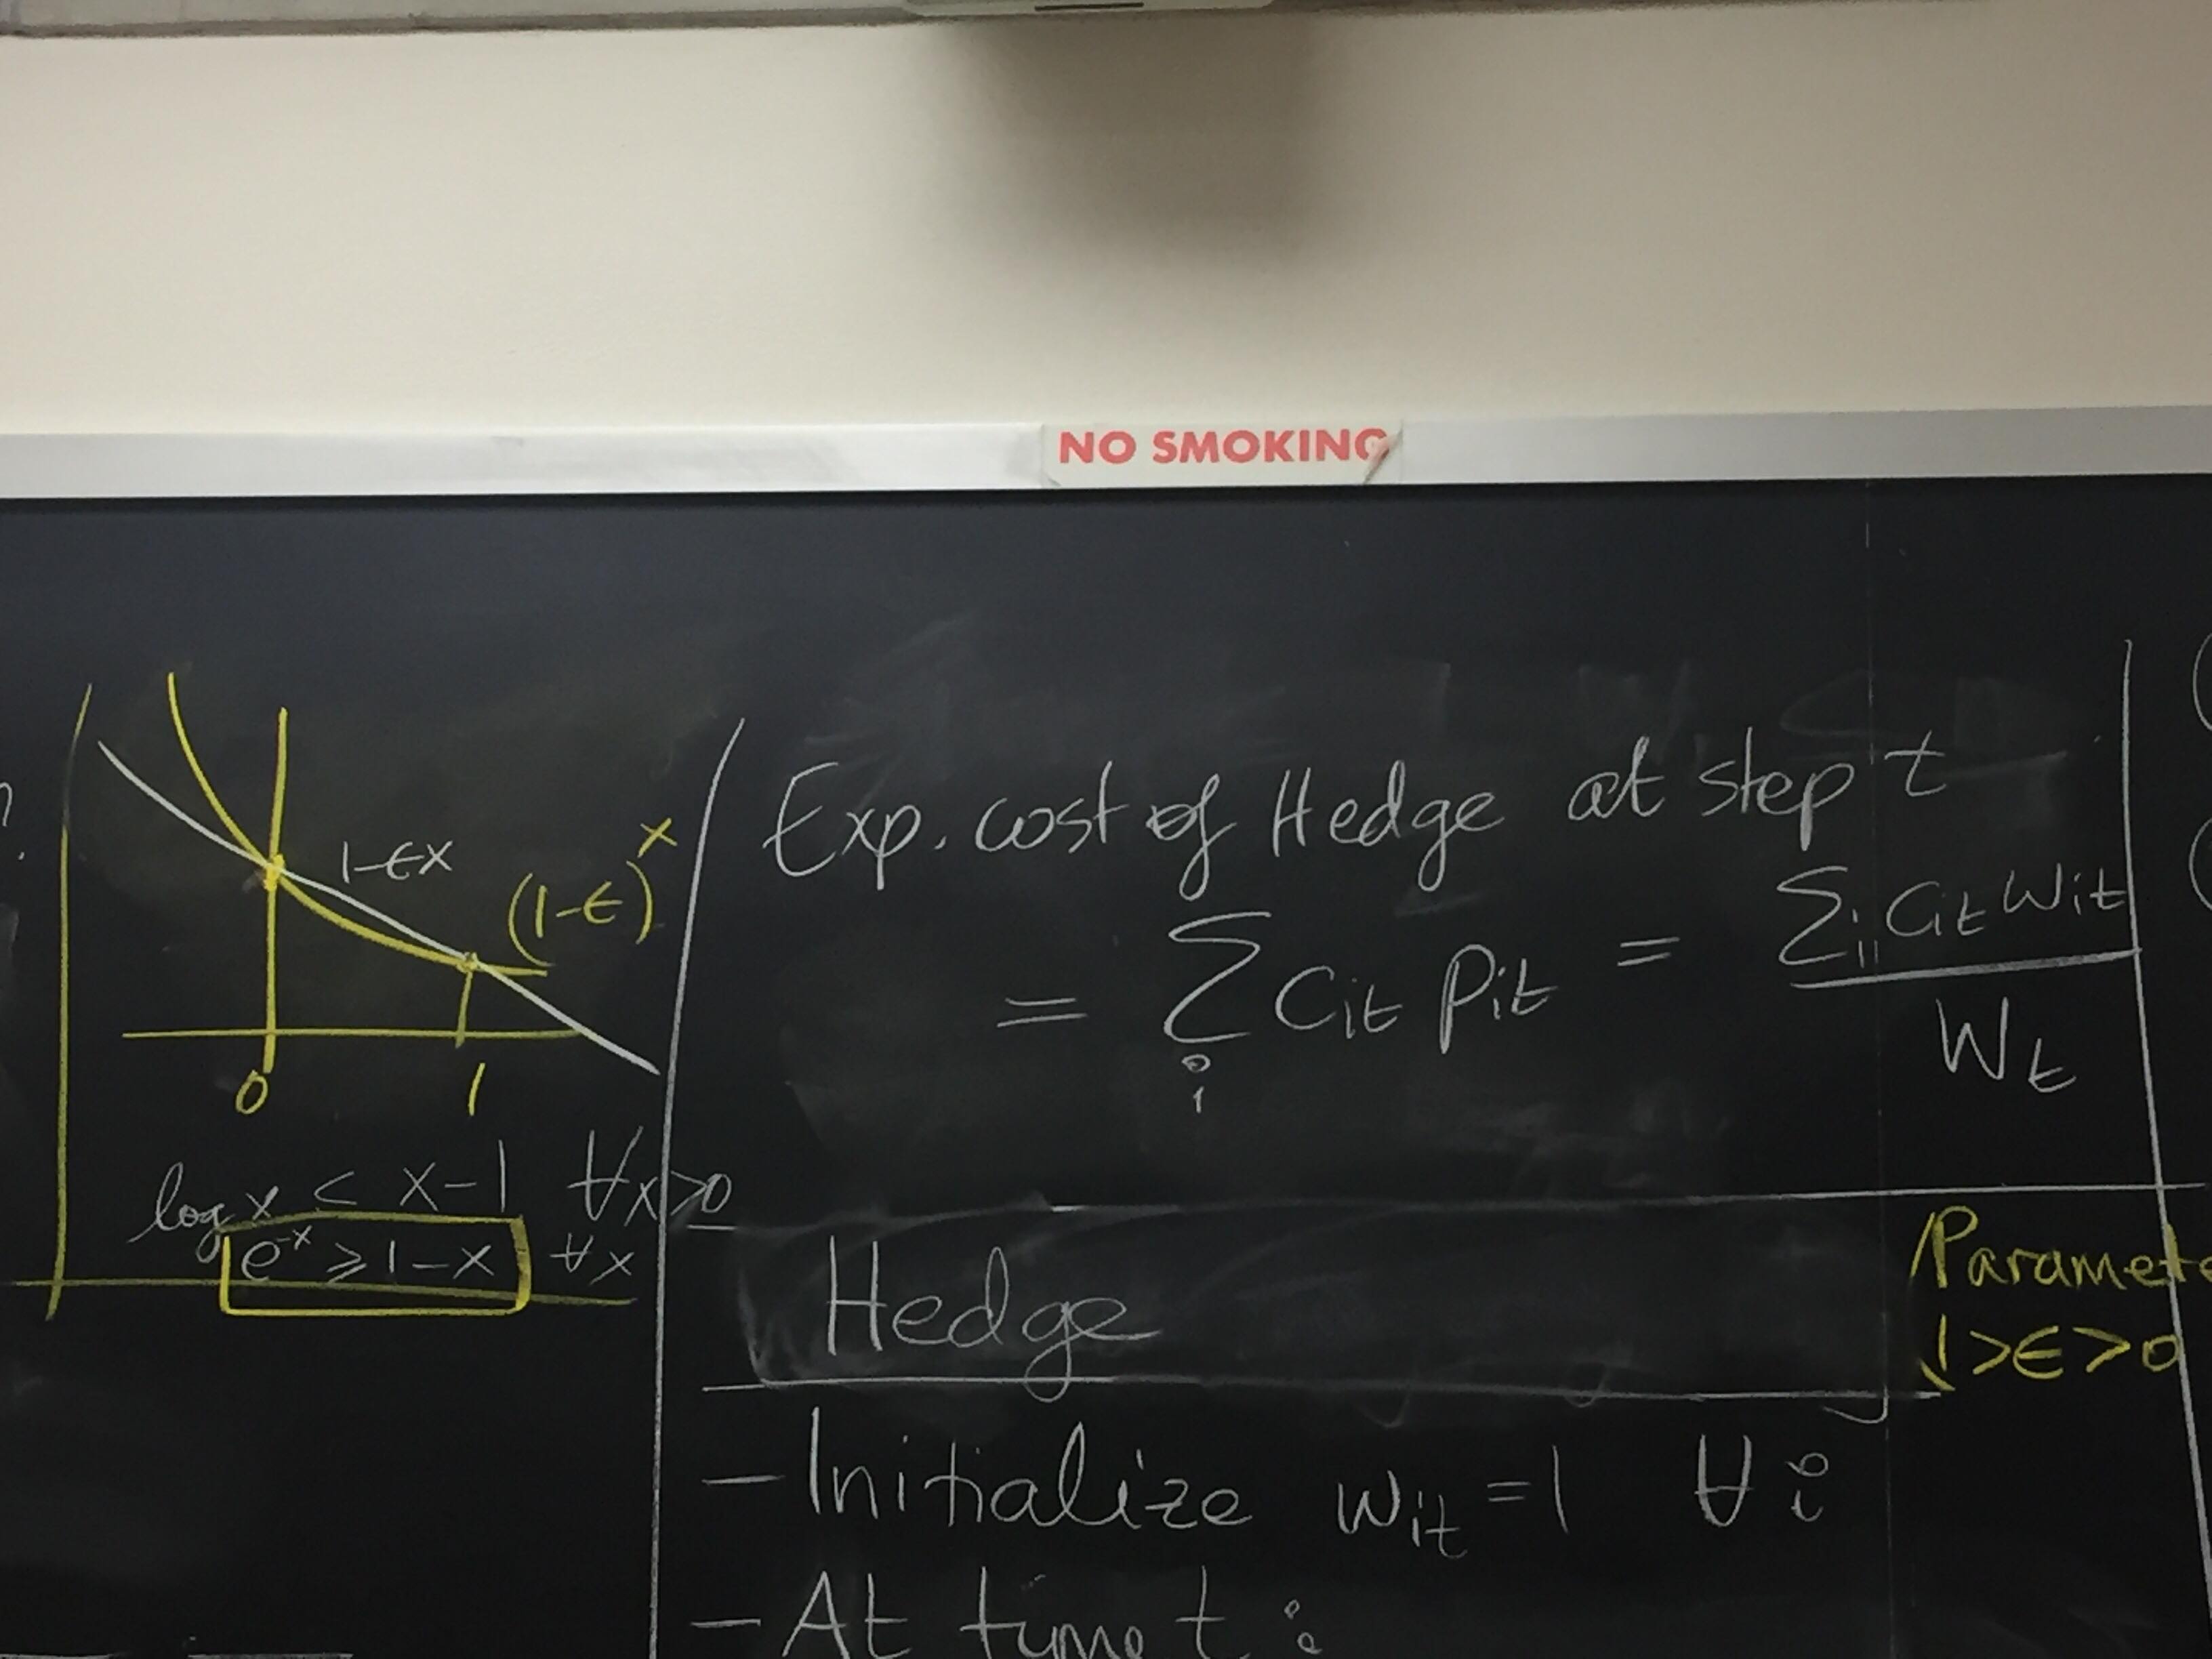 NO SMOKING
1-ϵx
(1-ϵ)^x
0 1
log x < x-1 ∀x>0
e^-x ≥ 1-x ∀x
Exp. cost of Hedge at step t
= Σ_i C_it P_it = Σ_i C_it W_it / W_t
Hedge
1>ϵ>0
- Initialize w_it = 1 ∀ i
- At time t :